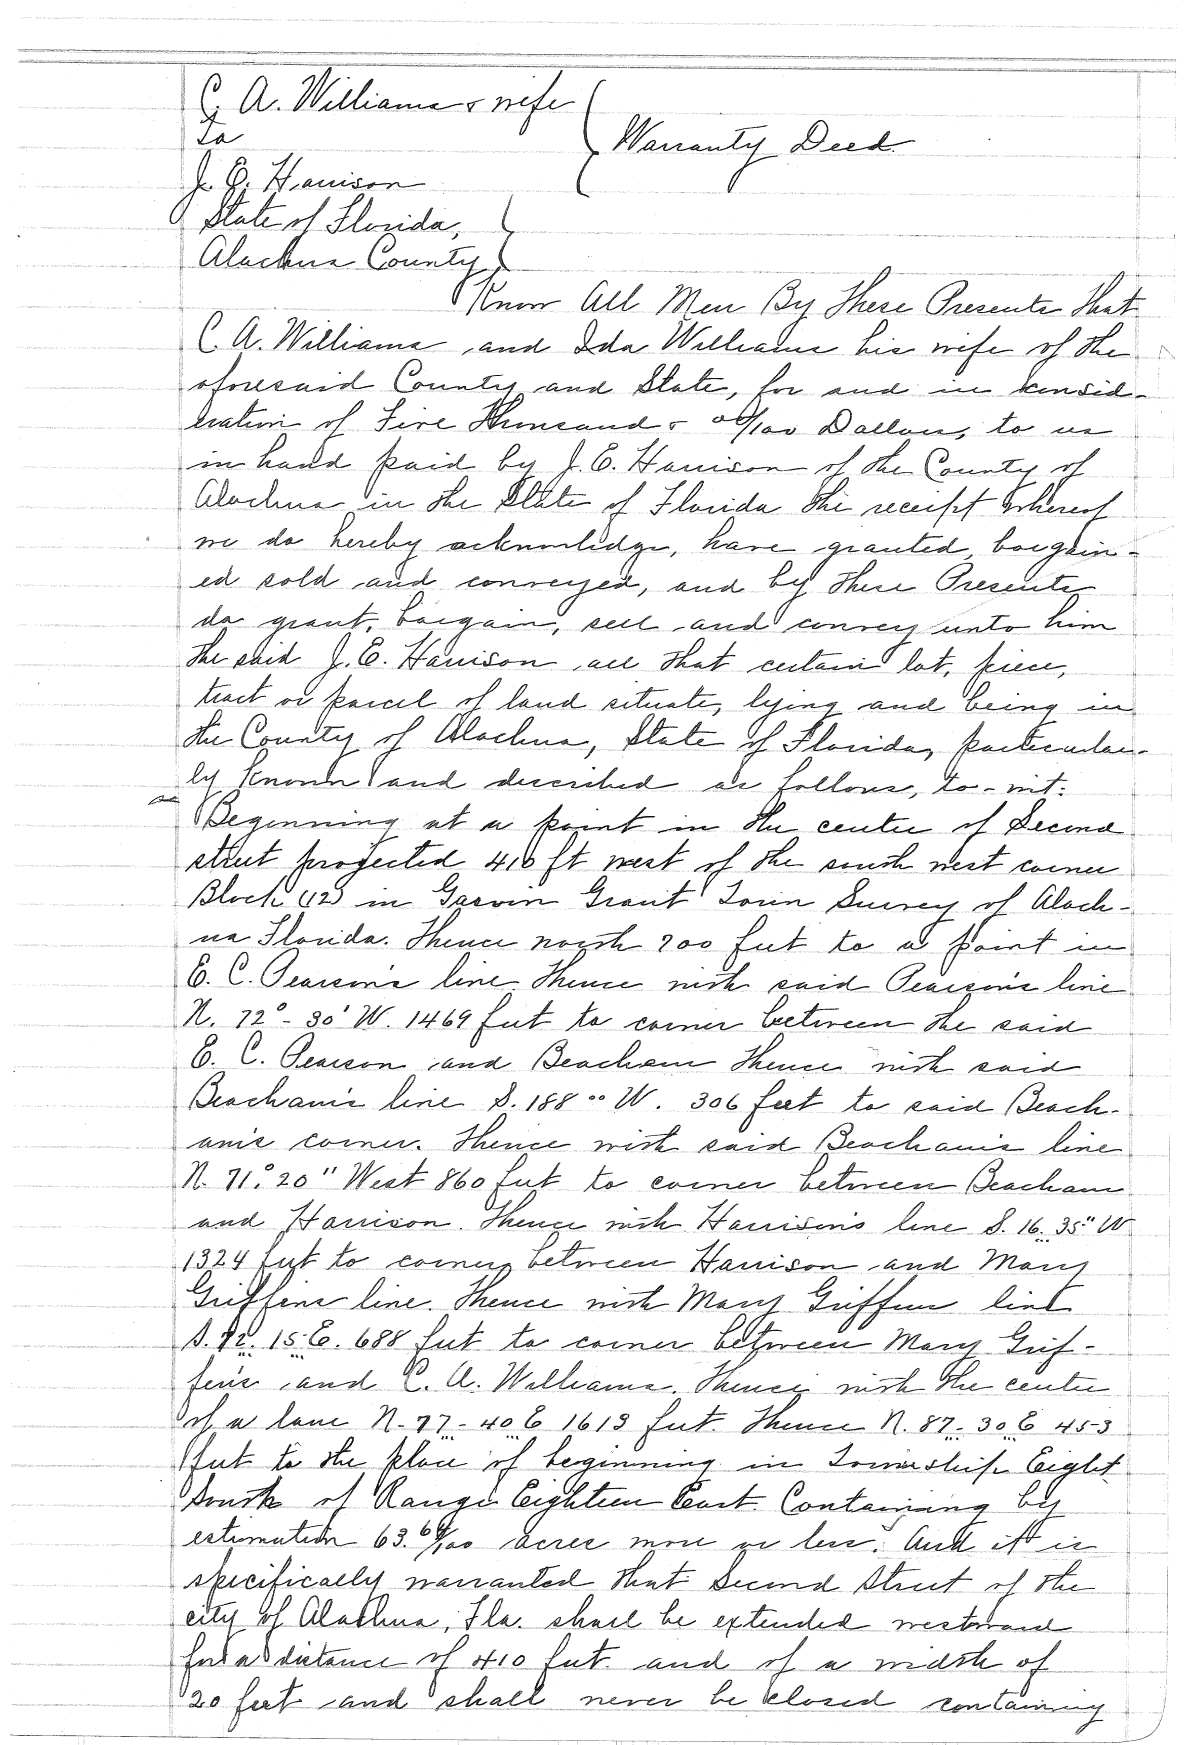 C. A. Williams & wife
To
Warranty Deed
J. E. Harrison
State of Florida,
Alachua County
Know All Men By These Presents That
C. A. Williams and Ida Williams his wife of the
aforesaid County and State, for and in consid-
eration of Five Thousand & 00/100 Dollars, to us
in hand paid by J. E. Harrison of the County of
Alachua in the State of Florida the receipt whereof
we do hereby acknowledge, have granted, bargain-
ed sold and conveyed, and by these Presents
do grant, bargain, sell and convey unto him
the said J. E. Harrison all that certain lot, piece,
tract or parcel of land situate, lying and being in
the County of Alachua, State of Florida, particular-
ly known and described as follows, to-wit:
Beginning at a point in the centre of Second
street projected 410 ft west of the south west corner
Block (12) in Garvin Grant Town Survey of Alach-
ua Florida. Thence north 700 feet to a point in
E. C. Pearson's line Thence with said Pearson's line
N. 72° - 30' W. 1469 feet to corner between the said
E. C. Pearson and Beacham Thence with said
Beacham's line S. 188 °° W. 306 feet to said Beach-
am's corner. Thence with said Beacham's line
N. 71.° 20" West 860 feet to corner between Beacham
and Harrison. Thence with Harrison's line S. 16. 35" W
1324 feet to corner between Harrison and Mary
Griffins line. Thence with Mary Griffin line
S. 72. 15 E. 688 feet to corner between Mary Grif-
fin's and C. A. Williams. Thence with the centre
of a lane N. 77 - 40 E 1613 feet. Thence N. 87 - 30 E 453
feet to the place of beginning in Township Eight
South of Range Eighteen East. Containing by
estimation 63. 60/100 acres more or less. And it is
specifically warranted that Second Street of the
city of Alachua, Fla. shall be extended westward
for a distance of 410 feet and of a width of
20 feet and shall never be closed containing